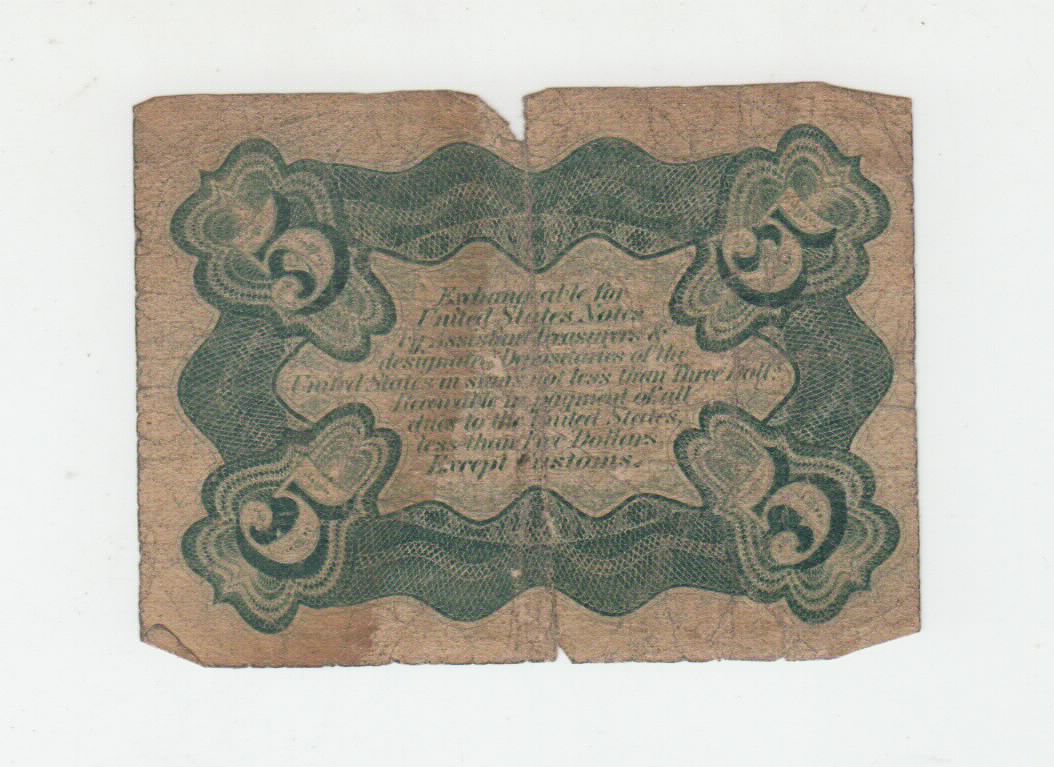 5 5
Exchangeable for
United States Notes
by Assistant Treasurers &
designated Depositaries of the
United States in sums not less than Three Doll.s
Receivable in payment of all
dues to the United States,
less than Five Dollars
Except Customs.
5 5